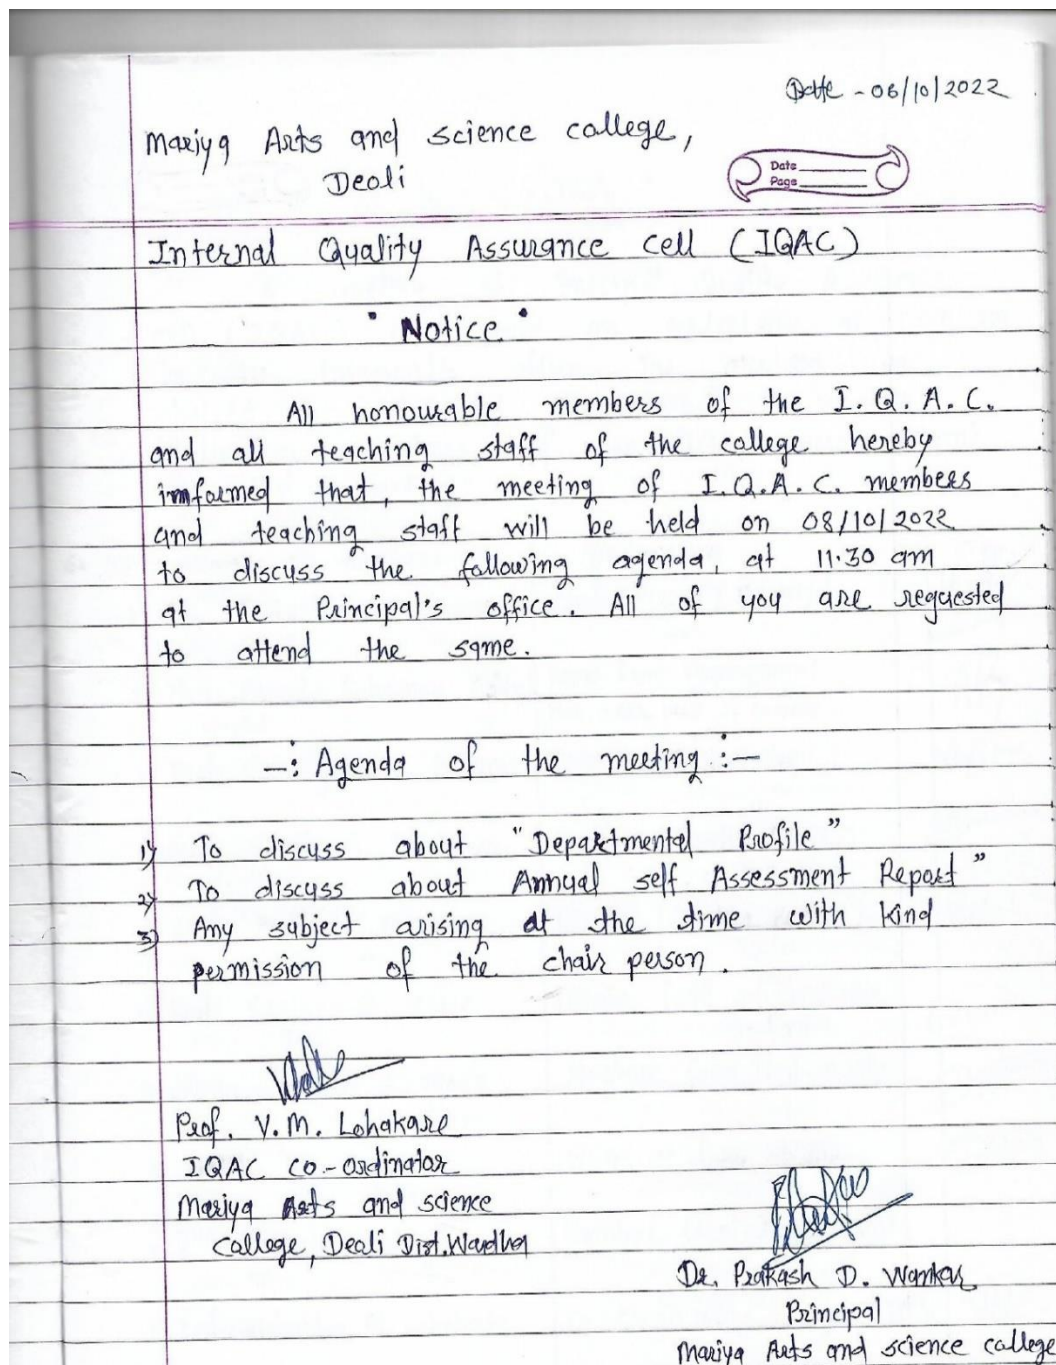 Date - 06/10/2022
Mariya Arts and science college,
Deoli
Date
Page
Internal Quality Assurance cell (IQAC)
" Notice "
All honourable members of the I. Q. A. C.
and all teaching staff of the college hereby
imformed that, the meeting of I.Q.A.C. members
and teaching staff will be held on 08/10/2022
to discuss the following agenda, at 11.30 am
at the Principal's office. All of you are requested
to attend the same.
-: Agenda of the meeting :-
1) To discuss about "Departmental Profile"
2) To discuss about Annual self Assessment Report"
3) Any subject arising at the time with kind
permission of the chair person.
Prof. V. M. Lohakare
IQAC co-ordinator
Mariya Arts and science
College, Deoli Dist. Wardha
Dr. Prakash D. Wankar
Principal
Mariya Arts and science college